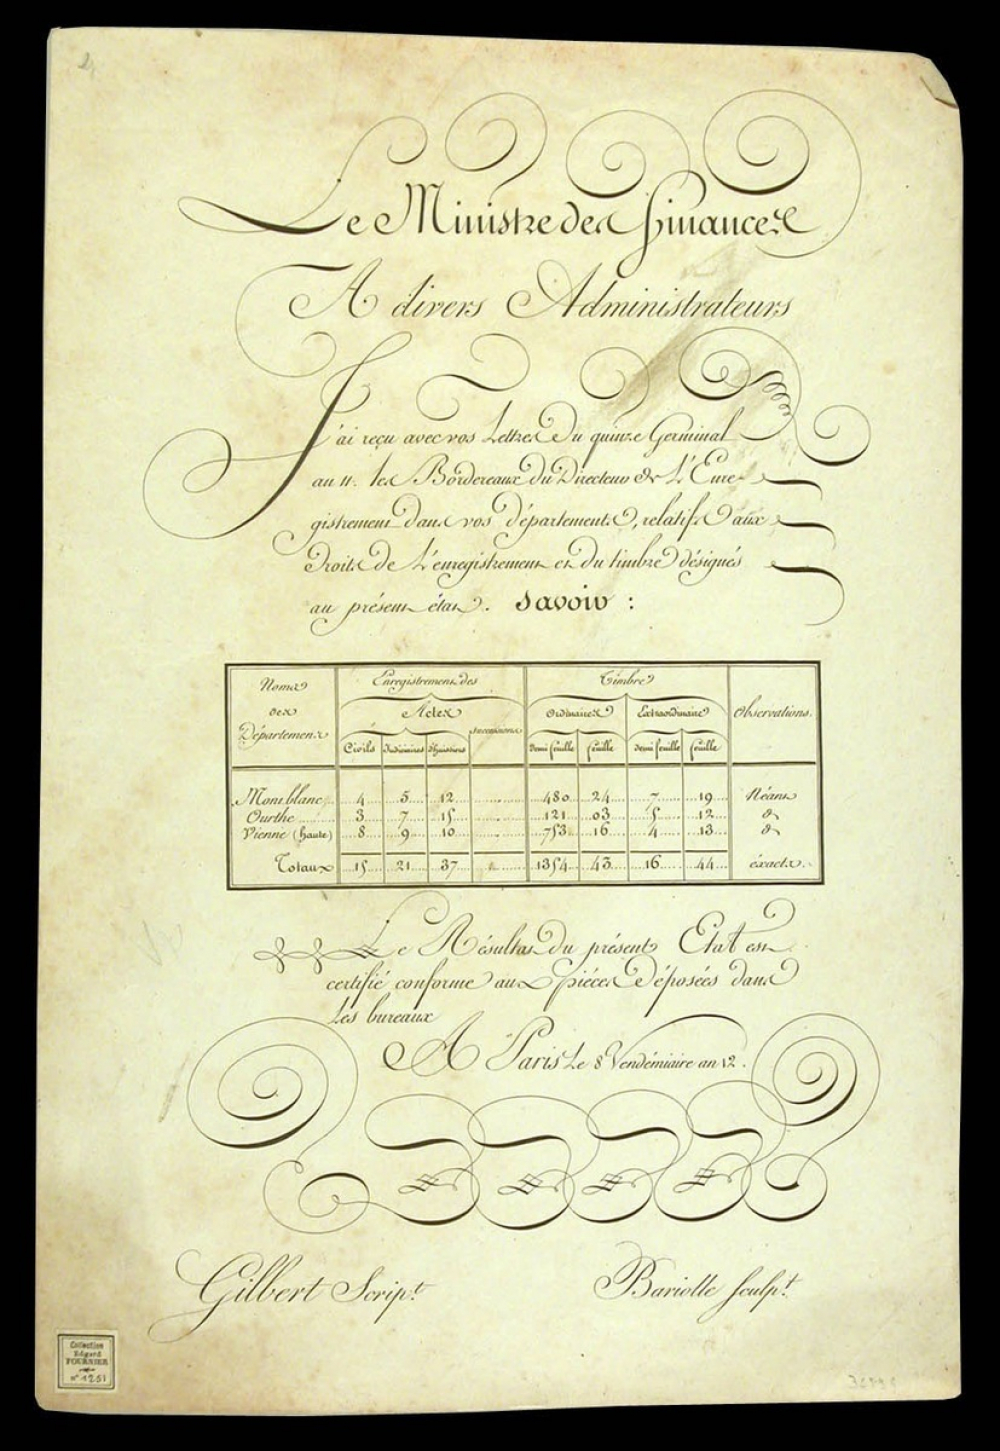 Le Ministre des Finances
A divers Administrateurs
J'ai reçu avec vos Lettres du quinze Germinal
an 11. les Bordereaux du Directeur de L'Enre-
gistrement dans vos départements, relatifs aux
Droits de L'enregistrement et du timbre désignés
au présent état. Savoir :
Noms des Départemens Enregistrement des Timbre Observations.
Actes successions Ordinaires Extraordinaire
Civils Judiciaires d'huissiers demi feuille feuille demi feuille feuille
Mont.blanc 4 5 12 480 24 7 19 Néant
Ourthe 3 7 15 121 03 5 12 do
Vienne (haute) 8 9 10 753 16 4 13 do
Totaux 15 21 37 1354 43 16 44 éxacts.
Le Résultat du présent Etat est
certifié conforme aux piéces déposées dans
Les bureaux
A Paris Le 8 Vendémiaire an 12.
Gilbert Scrip.t Bariolle sculp.t
Collection
Edgard
FOURNIER
n° 1251